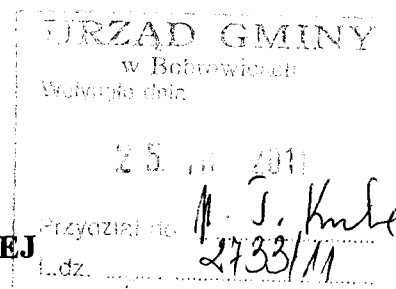 URZĄD GMINY
w Bobrowicach
Wpłynęło dnia
2 5. 201
Przydział do
EJ
L.dz. 2733/11